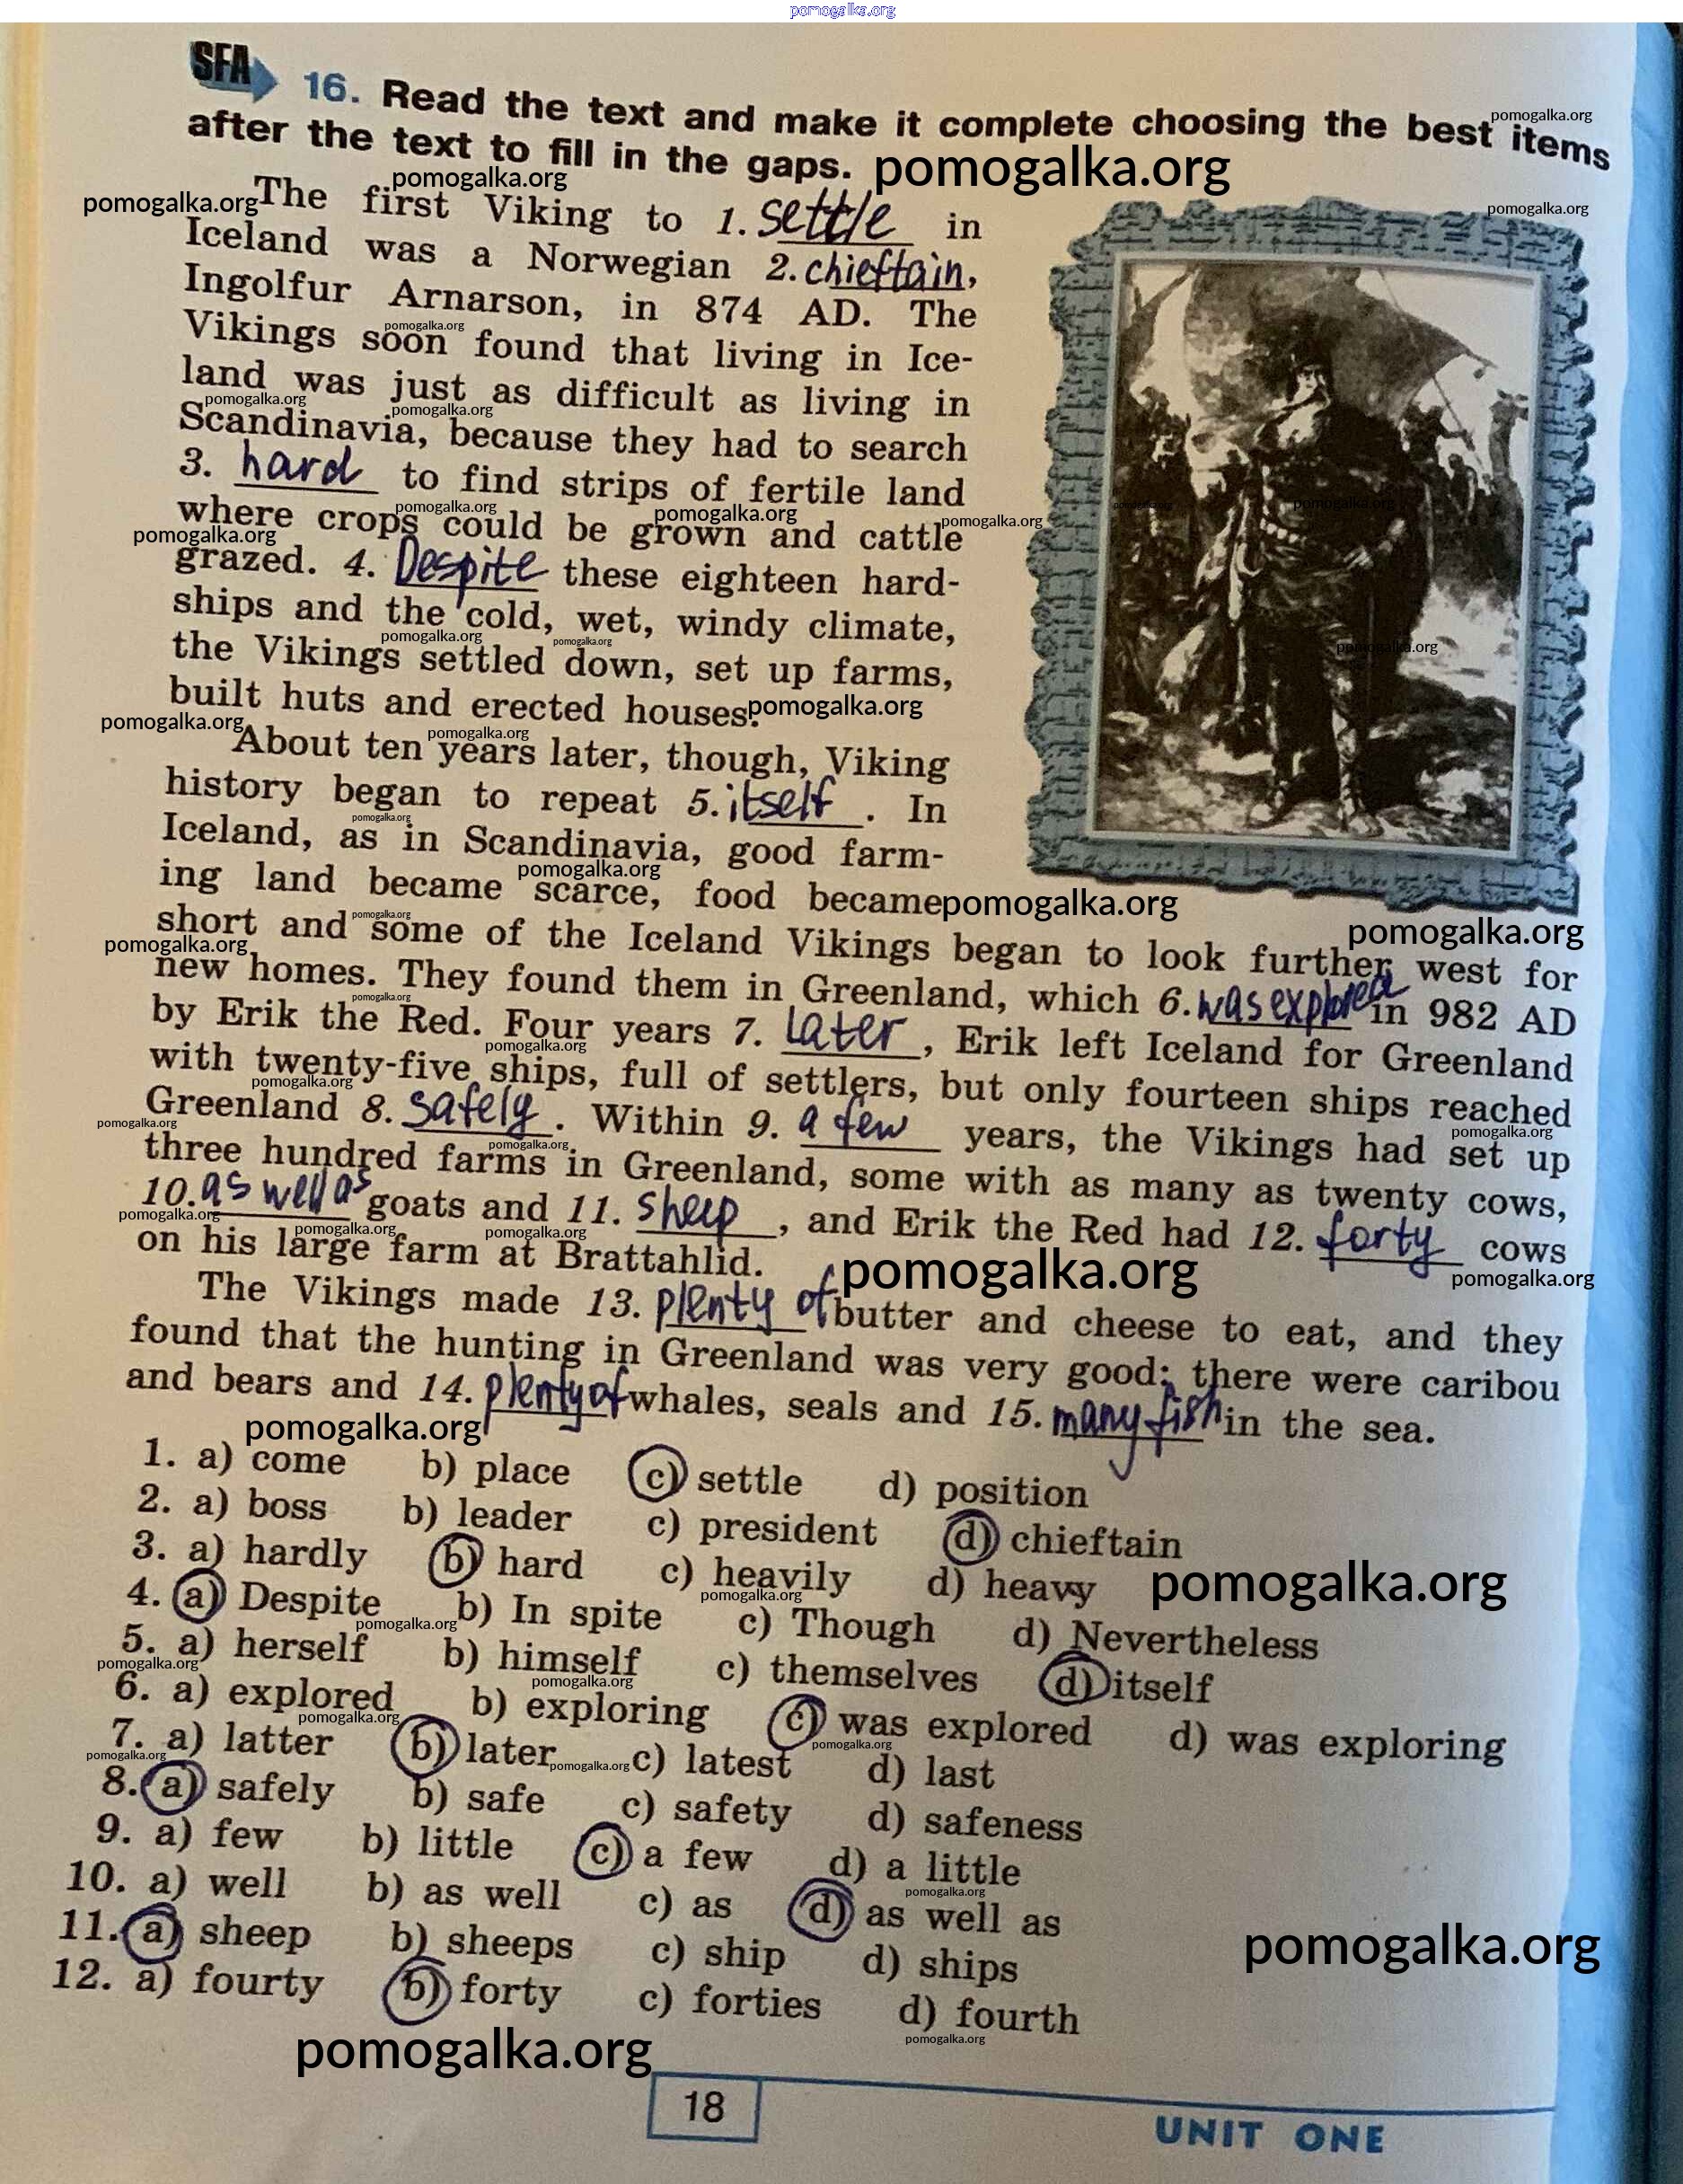 pomogalka.org
SFA 16. Read the text and make it complete choosing the best items
after the text to fill in the gaps.
The first Viking to 1. settle in
Iceland was a Norwegian 2. chieftain,
Ingolfur Arnarson, in 874 AD. The
Vikings soon found that living in Ice-
land was just as difficult as living in
Scandinavia, because they had to search
3. hard to find strips of fertile land
where crops could be grown and cattle
grazed. 4. Despite these eighteen hard-
ships and the cold, wet, windy climate,
the Vikings settled down, set up farms,
built huts and erected houses.
About ten years later, though, Viking
history began to repeat 5. itself. In
Iceland, as in Scandinavia, good farm-
ing land became scarce, food became
short and some of the Iceland Vikings began to look further west for
new homes. They found them in Greenland, which 6. was explored in 982 AD
by Erik the Red. Four years 7. later, Erik left Iceland for Greenland
with twenty-five ships, full of settlers, but only fourteen ships reached
Greenland 8. safely. Within 9. a few years, the Vikings had set up
three hundred farms in Greenland, some with as many as twenty cows,
10. as well as goats and 11. sheep, and Erik the Red had 12. forty cows
on his large farm at Brattahlid.
The Vikings made 13. plenty of butter and cheese to eat, and they
found that the hunting in Greenland was very good: there were caribou
and bears and 14. plenty of whales, seals and 15. many fish in the sea.
1. a) come b) place c) settle d) position
2. a) boss b) leader c) president d) chieftain
3. a) hardly b) hard c) heavily d) heavy
4. a) Despite b) In spite c) Though d) Nevertheless
5. a) herself b) himself c) themselves d) itself
6. a) explored b) exploring c) was explored d) was exploring
7. a) latter b) later c) latest d) last
8. a) safely b) safe c) safety d) safeness
9. a) few b) little c) a few d) a little
10. a) well b) as well c) as d) as well as
11. a) sheep b) sheeps c) ship d) ships
12. a) fourty b) forty c) forties d) fourth
18
UNIT ONE